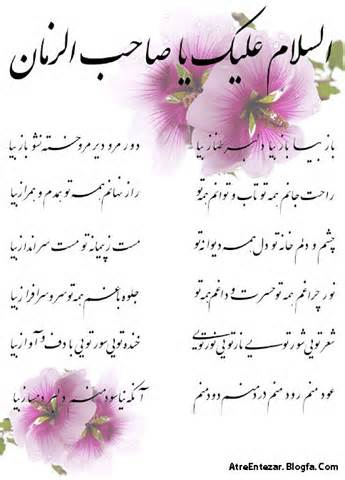 السلام علیک یا صاحب الزمان
باز بیا باز بیا دلبر طناز بیا دور مرو دیر مرو خسته نشو باز بیا
راحت جانم همه تو تاب و توانم همه تو راز نهانم همه تو همدم و همراز بیا
چشم و دلم خانه تو دل همه دیوانه تو مست ز پیمانه تو مست سرانداز بیا
نور چراغم همه تو حسرت و داغم همه تو جلوه باغم همه تو سرو سرافراز بیا
شعر تویی شور تویی ناز تویی نور تویی خنده تویی سور تویی با دف و آواز بیا
عود منم رود منم درد منم دود منم آنکه نیاسود منم دلبر بیا
AtreEntezar.Blogfa.Com